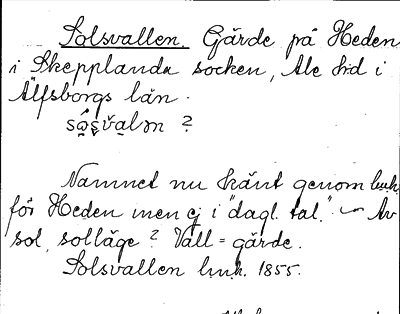 Solsvallen. Gärde på Heden
i Skepplanda socken, Ale hd i
Älfsborgs län.
?
Namnet nu känt genom lmk.
för Heden men ej i "dagl. tal." — Av
sol, solläge? Vall = gärde.
Solsvallen lmk. 1855.